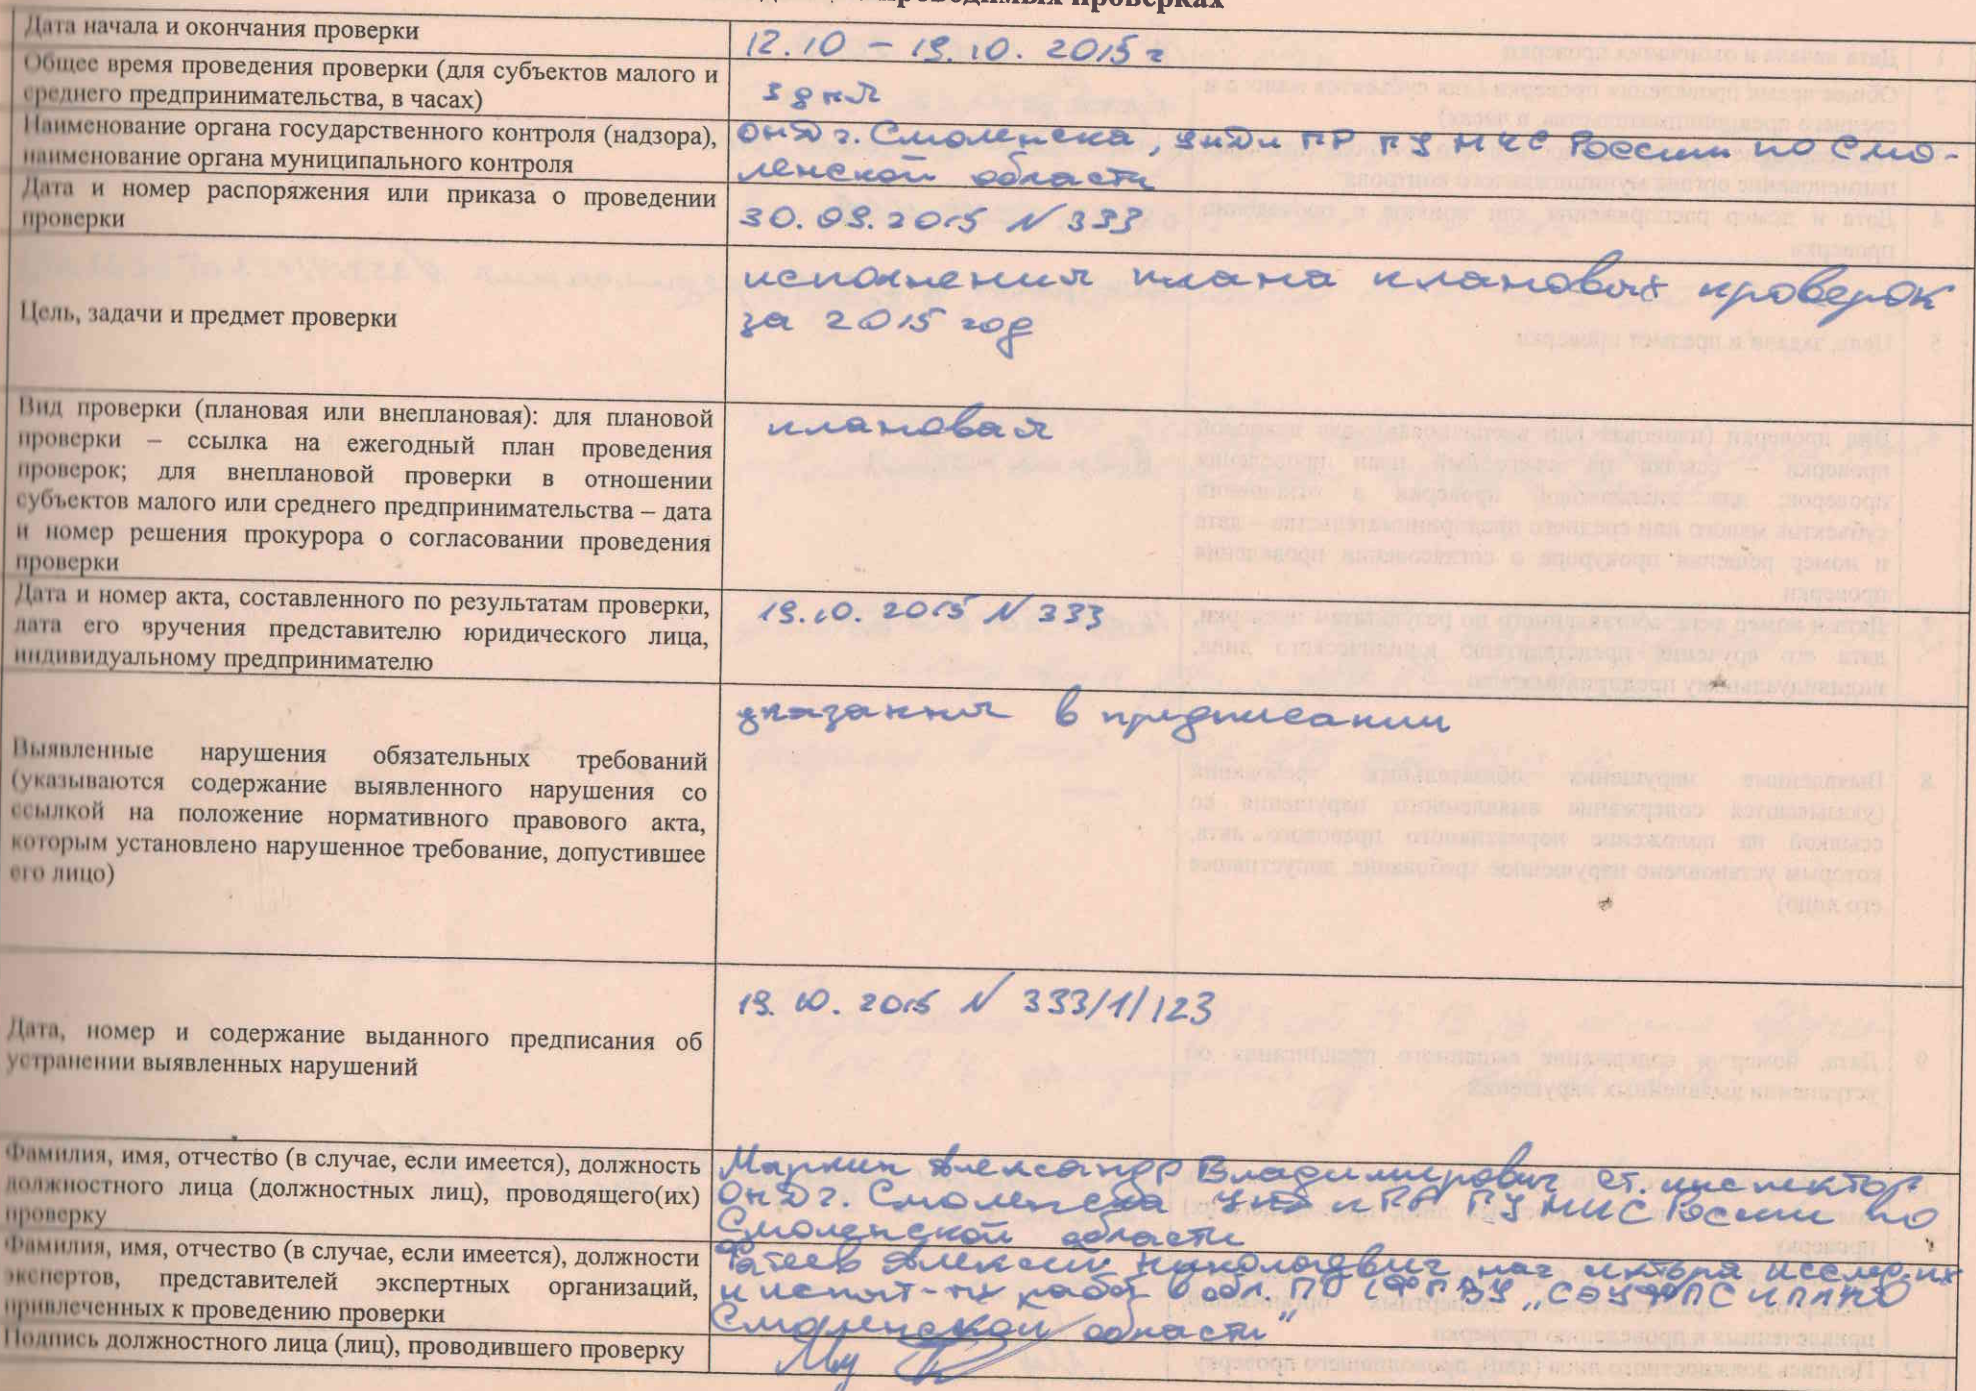 проводимых проверках
Дата начала и окончания проверки
12.10 – 19.10. 2015 г
Общее время проведения проверки (для субъектов малого и
среднего предпринимательства, в часах)
3 дня
Наименование органа государственного контроля (надзора),
наименование органа муниципального контроля
ОНД г. Смоленска, УНДи ПР ГУ МЧС России по Смо-
ленской области
Дата и номер распоряжения или приказа о проведении
проверки
30.09.2015 N 333
Цель, задачи и предмет проверки
исполнения плана плановых проверок
за 2015 год
Вид проверки (плановая или внеплановая): для плановой
проверки – ссылка на ежегодный план проведения
проверок; для внеплановой проверки в отношении
субъектов малого или среднего предпринимательства – дата
и номер решения прокурора о согласовании проведения
проверки
плановая
Дата и номер акта, составленного по результатам проверки,
дата его вручения представителю юридического лица,
индивидуальному предпринимателю
19.10. 2015 N 333
Выявленные нарушения обязательных требований
(указываются содержание выявленного нарушения со
ссылкой на положение нормативного правового акта,
которым установлено нарушенное требование, допустившее
его лицо)
указания в предписании
Дата, номер и содержание выданного предписания об
устранении выявленных нарушений
19. 10. 2015 N 333/1/123
Фамилия, имя, отчество (в случае, если имеется), должность
должностного лица (должностных лиц), проводящего(их)
проверку
Маркин Александр Владимирович ст. инспектор
ОНД г. Смоленска УНД и ПР ГУ МЧС России по
Смоленской области
Фамилия, имя, отчество (в случае, если имеется), должности
экспертов, представителей экспертных организаций,
привлеченных к проведению проверки
Алексей Николаевич нач сектора исслед-их
и испыт-ых работ в обл. ПБ ФГБУ „СЭУ ФПС ИПЛ по
Смоленской области"
Подпись должностного лица (лиц), проводившего проверку